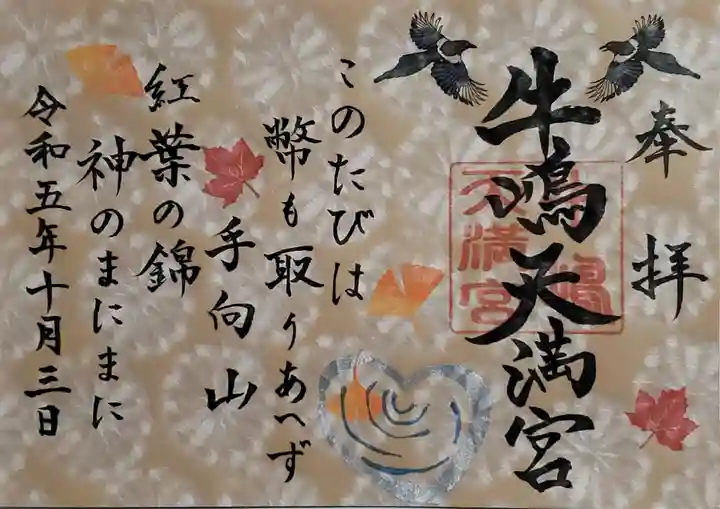 奉拝
牛嶋天満宮
天満宮
このたびは
幣も取りあへず
手向山
紅葉の錦
神のまにまに
令和五年十月三日